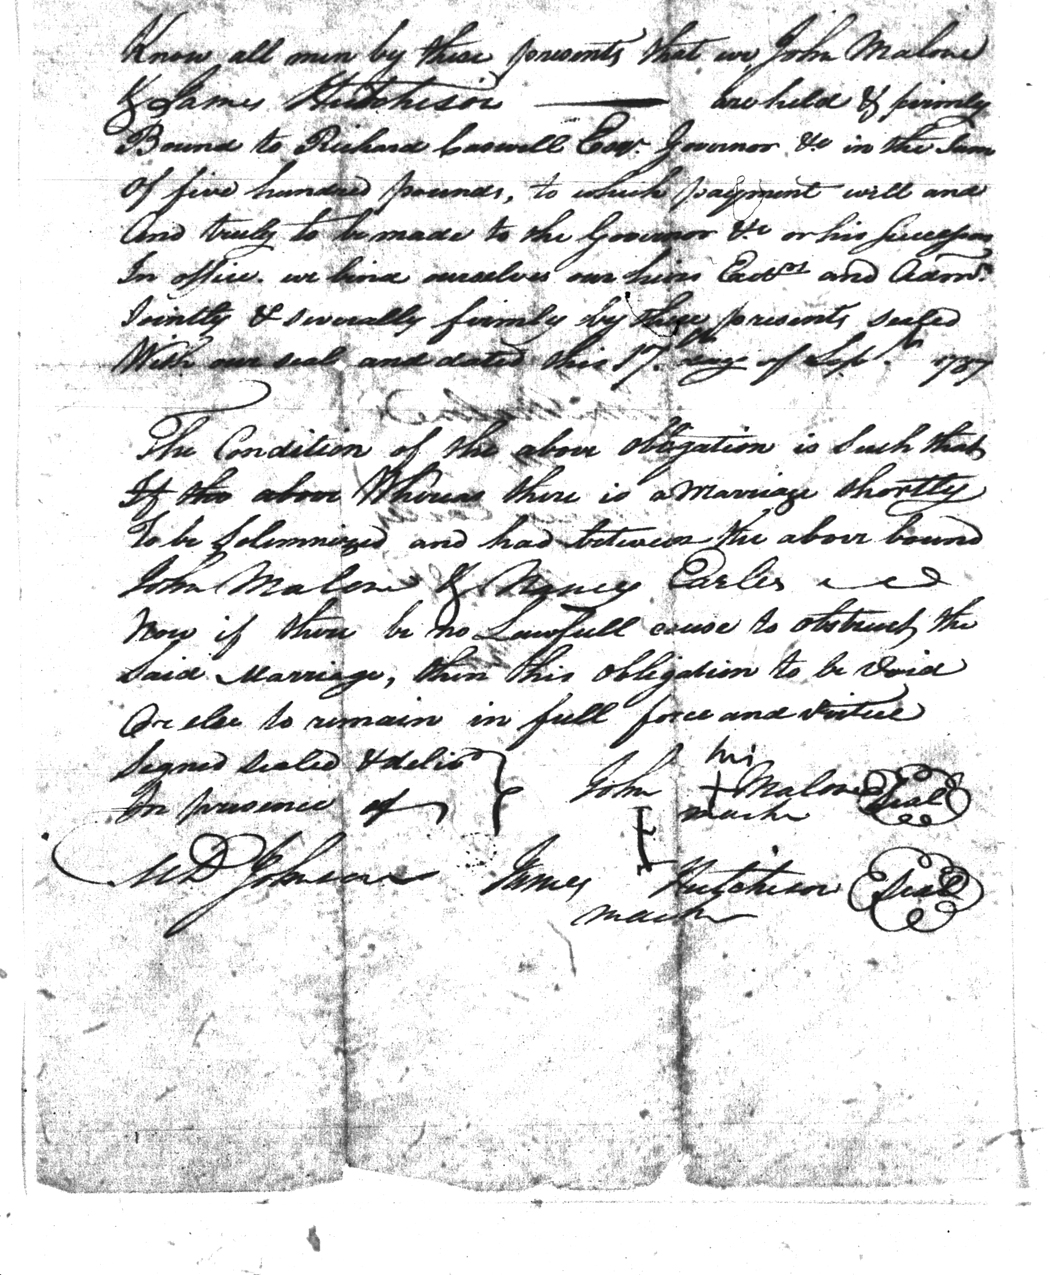 Know all men by these presents that we John Malone
& James Hutchison are held & firmly
Bound to Richard Caswell Esqr. Governor &c in the Sum
Of five hundred pounds, to which payment well and
And truly to be made to the Governor &c or his Successors
In office. we bind ourselves our heirs Exetrs and Admrs.
Jointly & severally firmly by these presents sealed
With our seal and dated this 17.th day of Sepr. 1787
The Condition of the above obligation is Such that
If the above Whereas there is a Marriage shortly
To be Solemnized and had between the above bound
John Malone & Nancy Earles
Now if there be no Lawfull cause to obstruct the
Said Marriage, then this obligation to be Void
Or else to remain in full force and virtue
Signed Sealed & deliv
In presence of
John his + mark Malone Seal
M D Johnson
James Hutchison Seal
mark